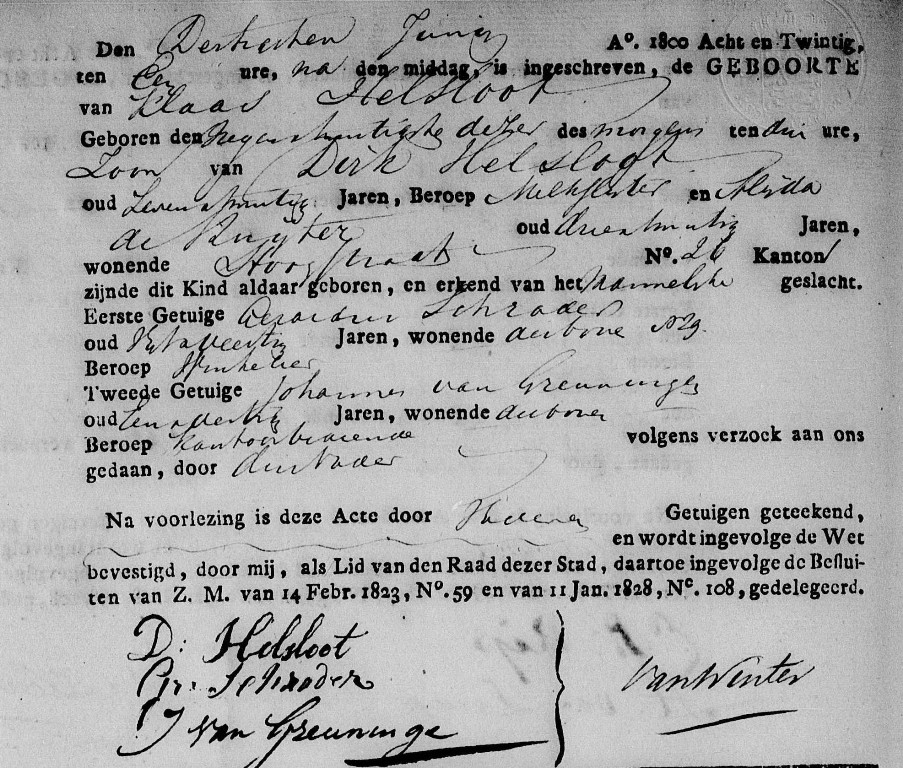 Den Dertigsten Junij A°. 1800 Acht en Twintig,
ten Een ure, na den middag, is ingeschreven, de GEBOORTE
van Klaas Helsloot
Geboren den Negenentwintigste dezer des morgens ten drie ure,
Zoon van Dirk Helsloot
oud Zevenentwintig Jaren, Beroep Melkslijter en Alijda
de Ruijter oud drieentwintig Jaren,
wonende Hoogstraat N°. 26 Kanton 1
zijnde dit Kind aldaar geboren, en erkend van het Mannelijke geslacht.
Eerste Getuige Gerardus Schrader
oud Jaren, wonende als boven N29.
Beroep Winkelier
Tweede Getuige Johannes van Greuningen
oud Jaren, wonende als boven
Beroep Kantoorbediende volgens verzoek aan ons
gedaan, door den Vader
Na voorlezing is deze Acte door Getuigen geteekend,
en wordt ingevolge de Wet
bevestigd, door mij, als Lid van den Raad dezer Stad, daartoe ingevolge de Beslui-
ten van Z. M. van 14 Febr. 1823, N°. 59 en van 11 Jan. 1828, N°. 108, gedelegeerd.
D: Helsloot
Gr. Schrader
J van Greuninge
van Winter